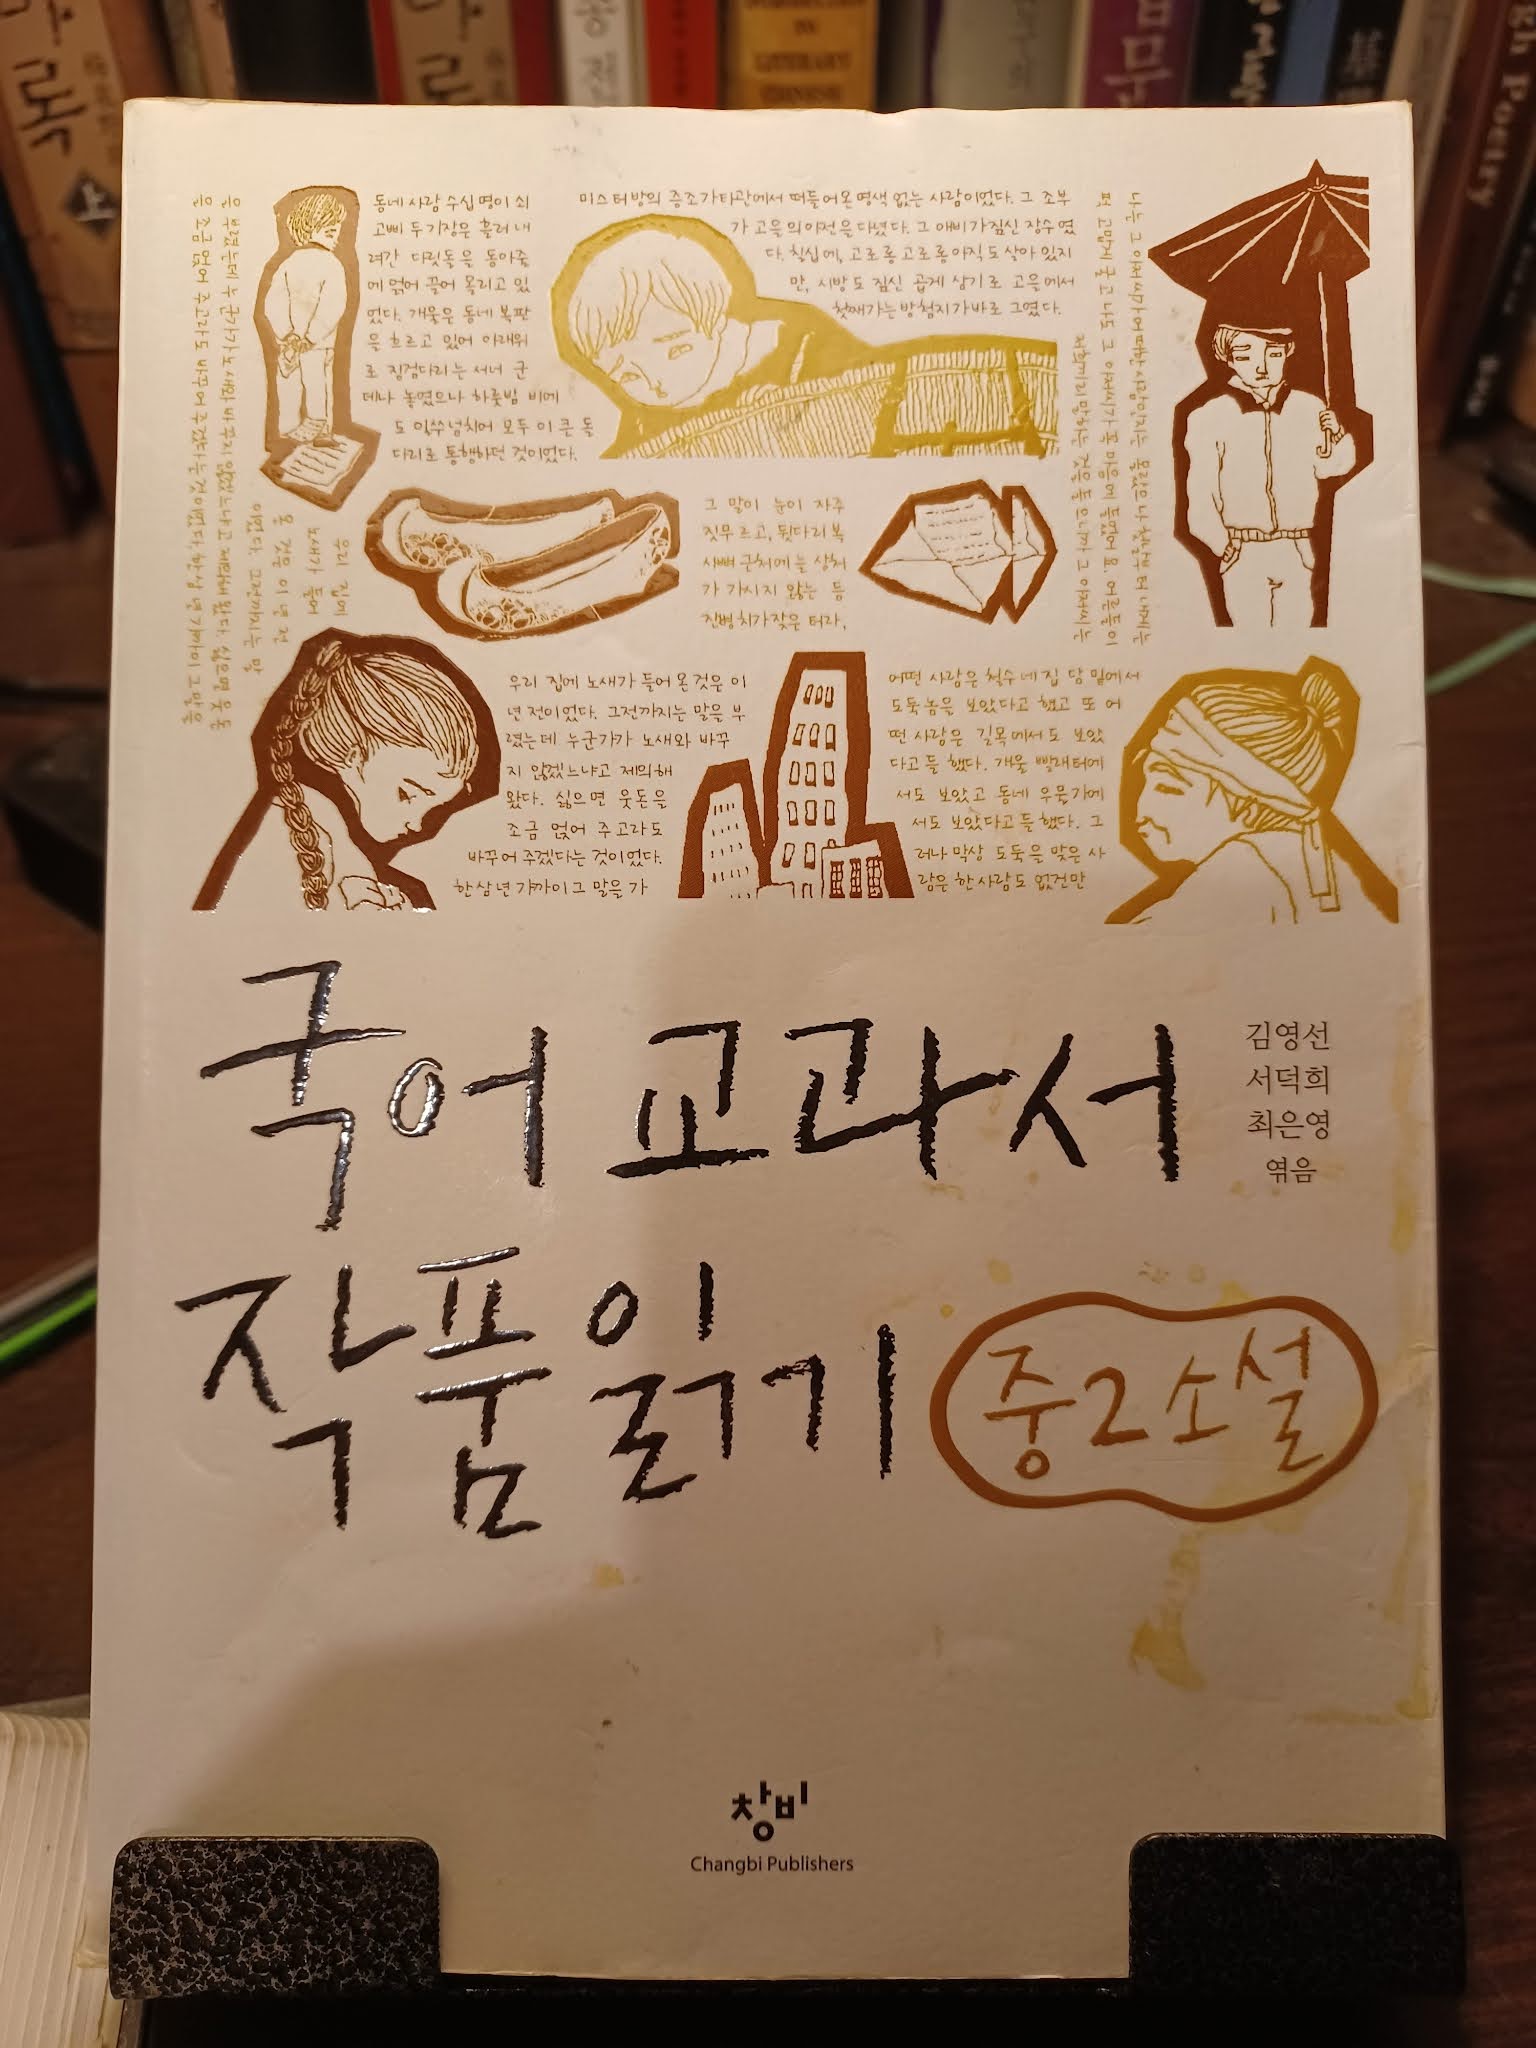 동네 사람 수십 명이 쇠
고삐 두 기장은 흘러 내
려간 다릿돌을 동아줄
에 얽어 끌어 올리고 있
었다. 개울은 동네 복판
을 흐르고 있어 아래위
로 징검다리는 서너 군
데나 놓였으나 하룻밤 비에
도 일수 넘치어 모두 이 큰 돌
다리로 통행하던 것이었다.
미스터 방의 증조가 타관에서 떠들어온 명색 없는 사람이었다. 그 조부
가 고을의 아전을 다녔다. 그 애비가 짚신 장수였
다. 칠십에, 고로롱고로롱 아직도 살아 있지
만, 시방도 짚신 곱게 삼기로 고을에서
첫째가는 방첨지가 바로 그였다.
그 말이 눈이 자주
짓무르고, 뒷다리 복
사뼈 근처에 늘 상처
가 가시지 않는 등
잔병치가 잦은 터라,
우리 집에
노새가 들어
온 것이 년 전
이었다. 그전까지는 말
을 부렸는데 누군가가 노새와 바꾸지 않겠느냐고 제의해 왔다. 싫으면 웃돈
을 조금 얹어 주고라도 바꾸어 주겠다는 것이었다. 한 삼 년 가까이 그 말을
우리 집에 노새가 들어온 것은 이
년 전이었다. 그전까지는 말을 부
렸는데 누군가가 노새와 바꾸
지 않겠느냐고 제의해
왔다. 싫으면 웃돈을
조금 얹어 주고라도
바꾸어 주겠다는 것이었다.
한 삼 년 가까이 그 말을 가
어떤 사람은 철수네 집 담 밑에서
도둑놈을 보았다고 했고 또 어
떤 사람은 길목에서도 보았
다고들 했다. 개울 빨래터에
서도 보았고 동네 우물가에
서도 보았다고들 했다. 그
러나 막상 도둑을 맞은 사
람은 한 사람도 없건만
국어 교과서
작품 읽기
중2 소설
김영선
서덕희
최은영
엮음
창비
Changbi Publishers
록
gh Poetry